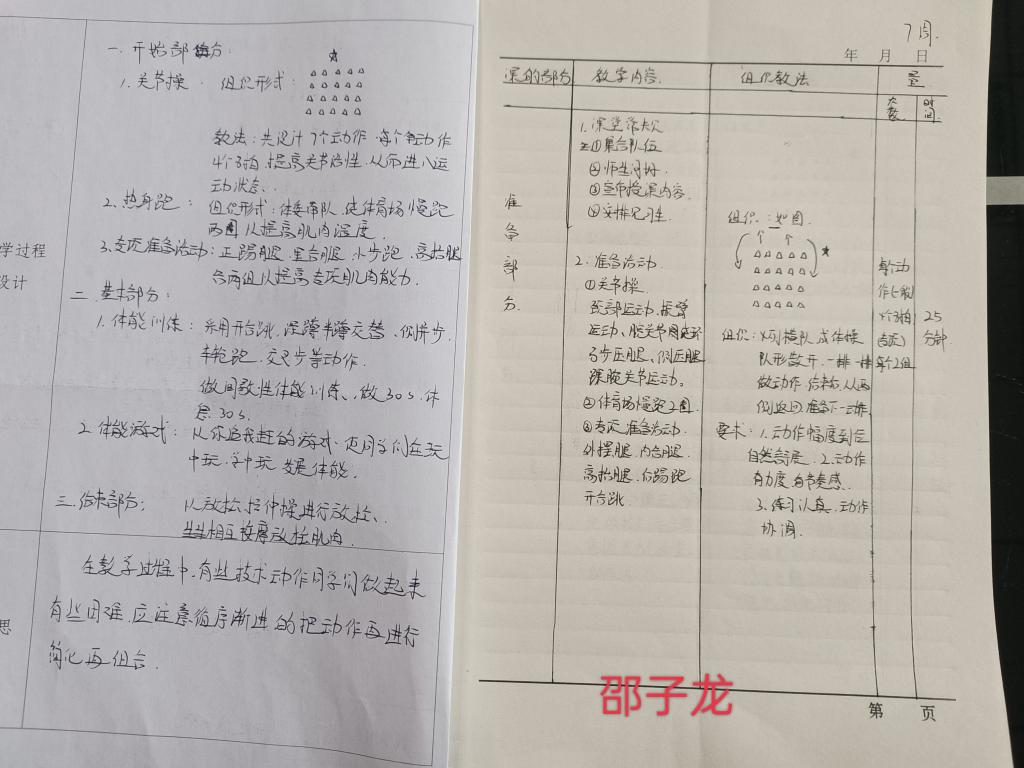 学过程
设计
思
一. 开始部分:
1. 关节操. 组织形式:
教法:共设计7个动作.每个动作
4个8拍,提高关节活性,从而进入运
动状态.
2. 热身跑: 组织形式:体委带队,使体育场慢跑
两圈以提高肌肉温度.
3. 专项准备活动:正踢腿.里合腿.小步跑.高抬腿
各两组以提高专项肌肉能力.
二. 基本部分:
1. 体能训练: 采用开合跳.深蹲半蹲交替.侧并步.
车轮跑.交叉步等动作.
做间歇性体能训练、做30s,休
息30s.
2. 体能游戏: 从你追我赶的游戏.使同学们在玩
中玩,学中玩 发展体能.
三. 结束部分: 以放松.拉伸操进行放松、
相互按摩放松肌肉.
在教学过程中,有些技术动作同学们做起来
有些困难,应注意循序渐进的把动作再进行
简化再组合.
7周.
年 月 日
课的部分
教学内容.
组织教法
量
次数
时间
准备部分.
1. 课堂常规
①集合队位
②师生问好
③宣布授课内容.
④安排见习生
2. 准备活动.
①关节操
颈部运动.振臂
运动、腕关节
弓步压腿、侧压腿
踝腕关节运动。
②体育场慢跑2圈.
③专项准备活动.
外摆腿.内合腿.
高抬腿.后踢跑
开合跳
组织:如图.
组织:四列横队成体操
队形散开.一排一排
做动作 结束后,从两
侧返回准备下一动作.
要求:1.动作幅度到位
自然舒展.2.动作
有力度,有节奏感.
3.练习认真.动作
协调.
每个动
作七般
4个8拍
每个2组
25
分钟
邵子龙
第 页